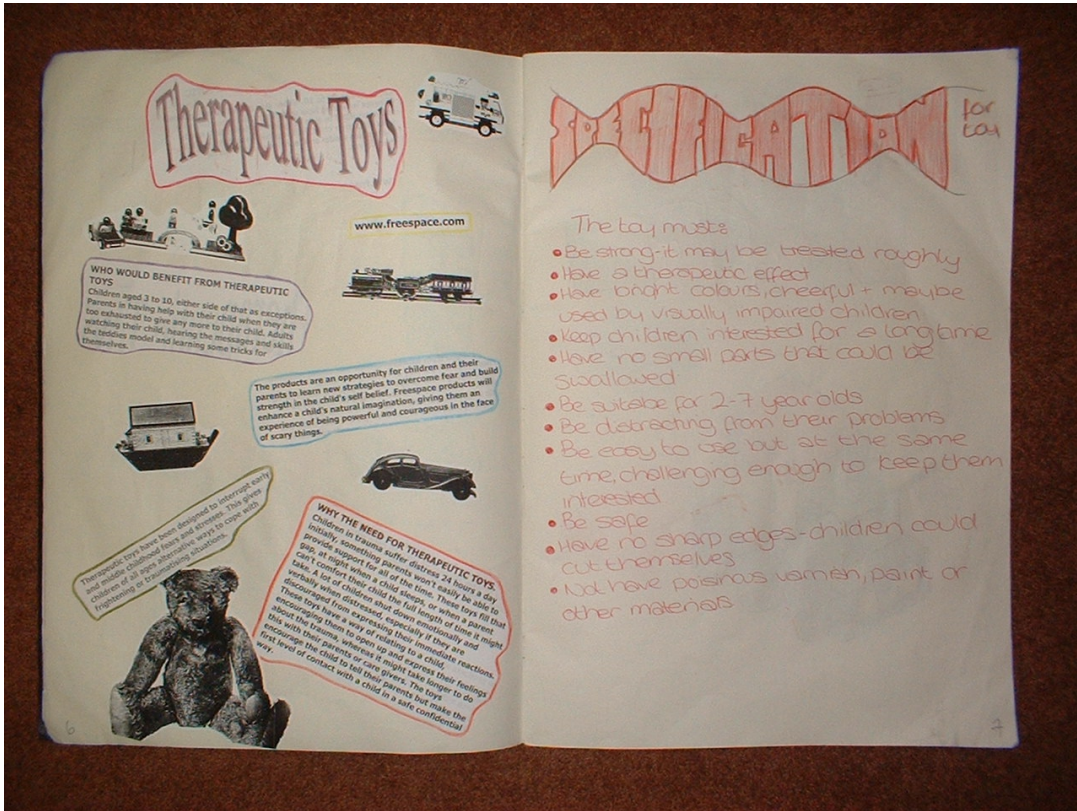 Therapeutic Toys
www.freespace.com
WHO WOULD BENEFIT FROM THERAPEUTIC
TOYS
Children aged 3 to 10, either side of that as exceptions.
Parents in having help with their child when they are
too exhausted to give any more to their child. Adults
watching their child, hearing the messages and skills
the teddies model and learning some tricks for
themselves.
The products are an opportunity for children and their
parents to learn new strategies to overcome fear and build
strength in the child's self belief. Freespace products will
enhance a child's natural imagination, giving them an
experience of being powerful and courageous in the face
of scary things.
Therapeutic toys have been designed to interrupt early
and middle childhood fears and stresses. This gives
children of all ages alternative ways to cope with
frightening or traumatising situations.
WHY THE NEED FOR THERAPEUTIC TOYS.
Children in trauma suffer distress 24 hours a day
initially, something parents won't easily be able to
provide support for all of the time. These toys fill that
gap, at night when a child sleeps, or when a parent
can't comfort their child the full length of time it might
take. A lot of children shut down emotionally and
verbally when distressed, especially if they are
discouraged from expressing their immediate reactions.
These toys have a way of relating to a child,
encouraging them to open up and express their feelings
about the trauma, whereas it might take longer to do
this with their parents or care givers. The toys
encourage the child to tell their parents but make the
first level of contact with a child in a safe confidential
way.
6
SPECIFICATION
for
toy
The toy must:
• Be strong-it may be treated roughly
• Have a therapeutic effect
• Have bright colours, cheerful + maybe
used by visually impaired children
• Keep children interested for a long time
• Have no small parts that could be
swallowed
• Be suitable for 2-7 year olds
• Be distracting from their problems
• Be easy to use but at the same
time, challenging enough to keep them
interested
• Be safe
• Have no sharp edges-children could
cut themselves
• Not have poisinous varnish, paint or
other materials
7